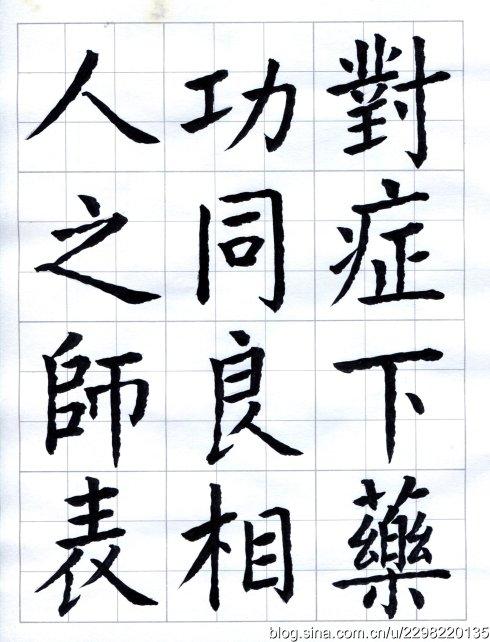 對症下藥
功同良相
人之師表
blog.sina.com.cn/u/2298220135